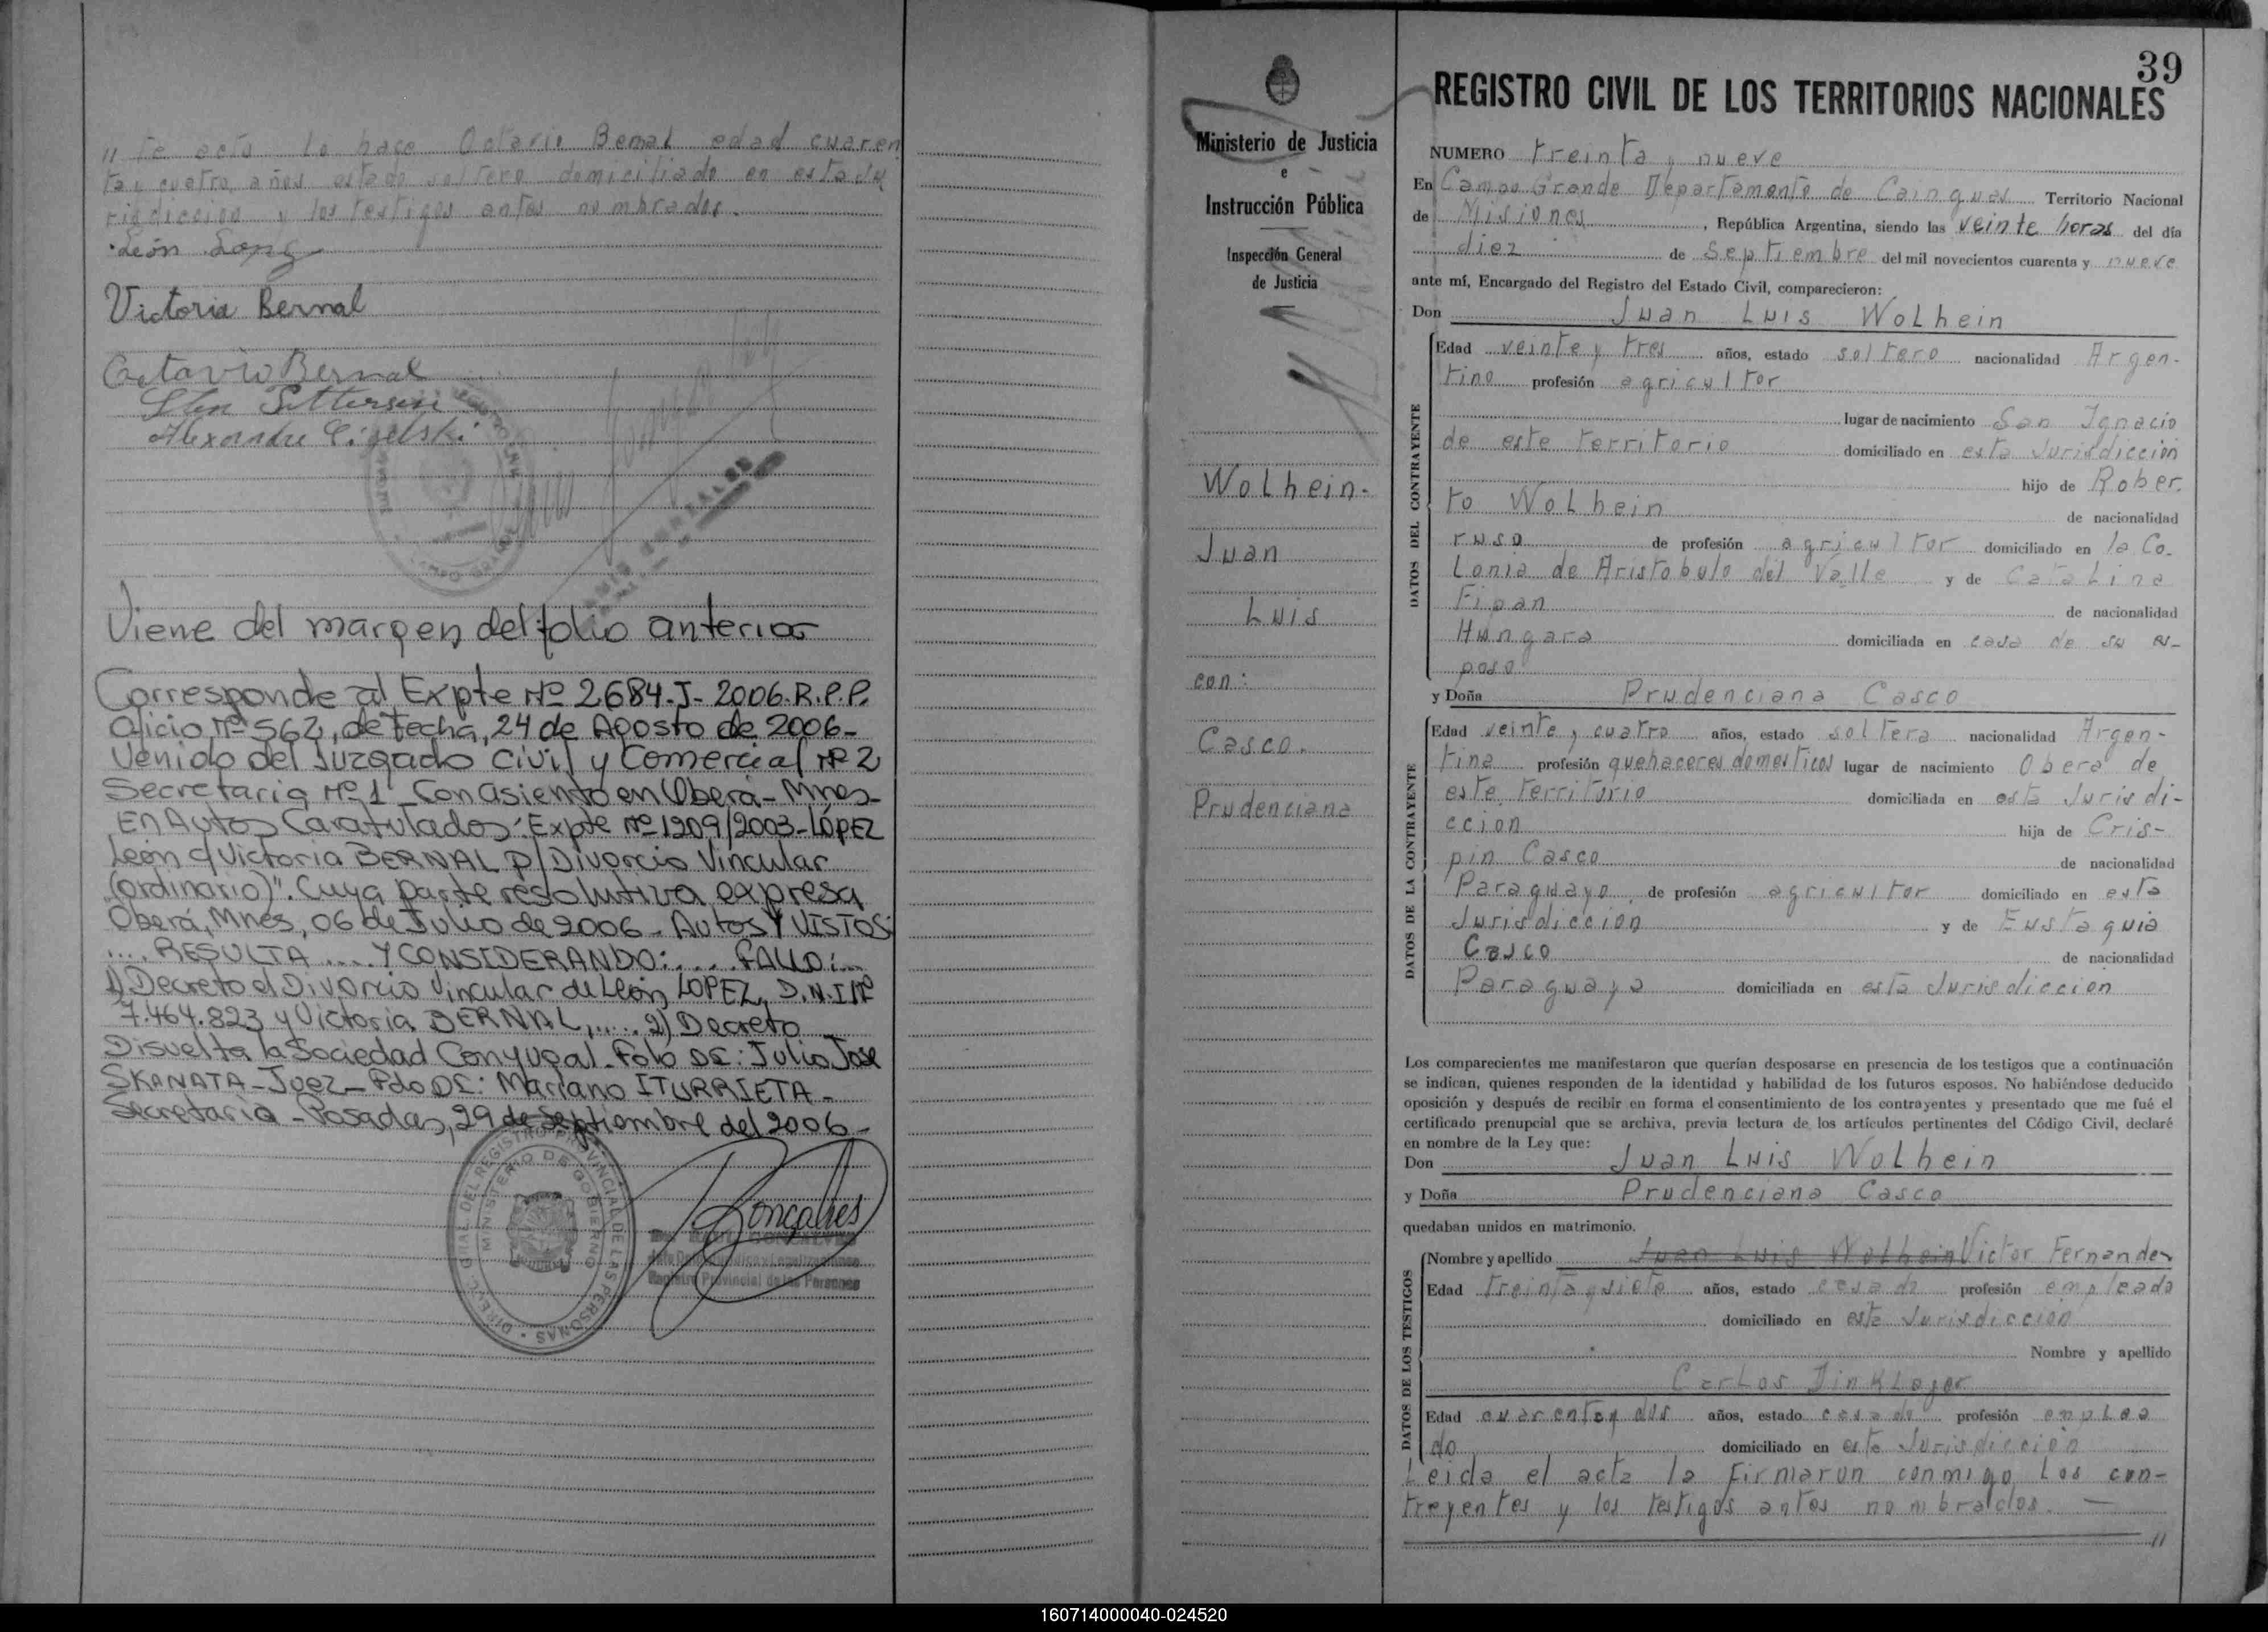 te acto lo hace Octavio Bernal edad cuaren
ta y cuatro años estado soltero domiciliado en esta Ju
risdiccion y los testigos antes nombrados.
León Lopez
Victoria Bernal
Octavio Bernal
Alexandre
Viene del margen del folio anterior
Corresponde al Expte Nº 2684-J-2006.R.P.P.
Oficio Nº 562, de fecha, 24 de Agosto de 2006-
Venido del Juzgado Civil y Comercial Nº 2
Secretaria Nº 1 - Con asiento en Oberá - Mnes-
En Autos Caratulados: "Expte Nº 1209/2003 - LÓPEZ
León c/ Victoria BERNAL p/ Divorcio Vincular
(ordinario)". Cuya parte resolutiva expresa
Oberá, Mnes, 06 de Julio de 2006 - Autos Y VISTOS:
.... RESULTA .... Y CONSIDERANDO: .... FALLO: ...
1) Decreto el Divorcio Vincular de León LOPEZ, D.N.I Nº
7.464.823 y Victoria BERNAL, ..... 2) Decreto
Disuelta la Sociedad Conyugal - Fdo Dr: Julio José
SKANATA - Juez - Fdo Dr: Mariano ITURRIETA -
Secretaria - Posadas, 29 de Septiembre del 2006 -
DIREC. GRAL DEL REGISTRO PROVINCIAL DE LAS PERSONAS
MINISTERIO DE GOBIERNO
Goncalves
Registro Provincial de las Personas
Ministerio de Justicia
e
Instrucción Pública
Inspección General
de Justicia
Wolhein-
Juan
Luis
con:
Casco.
Prudenciana
39
REGISTRO CIVIL DE LOS TERRITORIOS NACIONALES
NUMERO treinta y nueve
En Campo Grande Departamento de Cainguas Territorio Nacional
de Misiones, República Argentina, siendo las veinte horas del día
diez de Septiembre del mil novecientos cuarenta y nueve
ante mí, Encargado del Registro del Estado Civil, comparecieron:
Don Juan Luis Wolhein
DATOS DEL CONTRAYENTE
Edad veinte y tres años, estado soltero nacionalidad Argen-
tino profesión agricultor
lugar de nacimiento San Ignacio
de este territorio domiciliado en esta Jurisdiccion
hijo de Rober
to Wolhein de nacionalidad
ruso de profesión agricultor domiciliado en la Co-
lonia de Aristobulo del Valle y de Catalina
Fipan de nacionalidad
Hungara domiciliada en casa de su es-
poso
y Doña Prudenciana Casco
DATOS DE LA CONTRAYENTE
Edad veinte y cuatro años, estado soltera nacionalidad Argen-
tina profesión quehaceres domesticos lugar de nacimiento Obera de
este territorio domiciliada en esta Jurisdi-
ccion hija de Cris-
pin Casco de nacionalidad
Paraguayo de profesión agricultor domiciliado en esta
Jurisdiccion y de Eustaquia
Casco de nacionalidad
Paraguaya domiciliada en esta Jurisdiccion
Los comparecientes me manifestaron que querían desposarse en presencia de los testigos que a continuación
se indican, quienes responden de la identidad y habilidad de los futuros esposos. No habiéndose deducido
oposición y después de recibir en forma el consentimiento de los contrayentes y presentado que me fué el
certificado prenupcial que se archiva, previa lectura de los artículos pertinentes del Código Civil, declaré
en nombre de la Ley que:
Don Juan Luis Wolhein
y Doña Prudenciana Casco
quedaban unidos en matrimonio.
DATOS DE LOS TESTIGOS
Nombre y apellido Juan Luis Wolhein Victor Fernandez
Edad treinta y siete años, estado casado profesión empleado
domiciliado en esta Jurisdiccion
Nombre y apellido
Carlos Dinklager
Edad cuarenta y dos años, estado casado profesión emplea
do domiciliado en esta Jurisdiccion
Leida el acta la firmaron conmigo los con-
trayentes y los testigos antes nombrados. —
160714000040-024520